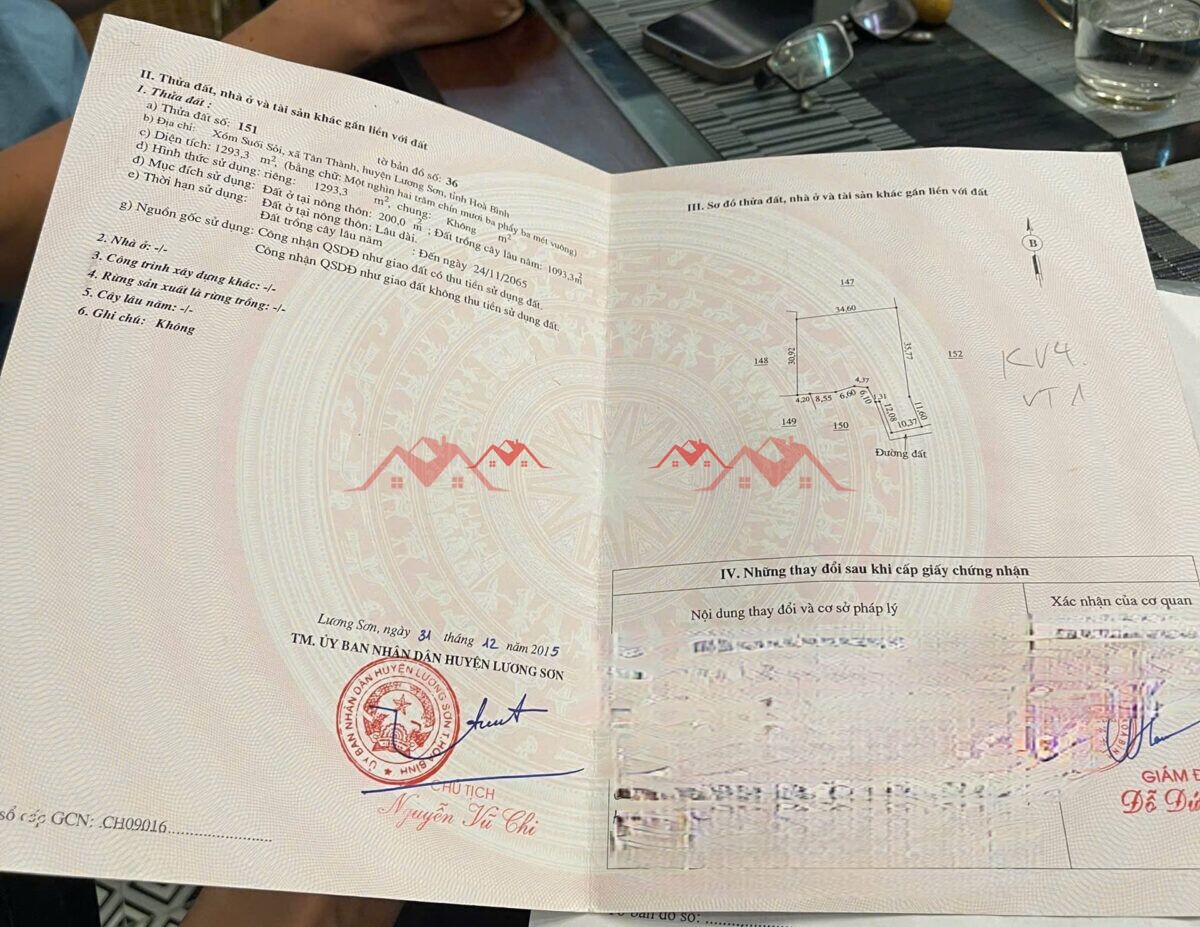 II. Thửa đất, nhà ở và tài sản khác gắn liền với đất
1. Thửa đất :
a) Thửa đất số: 151 tờ bản đồ số: 36
b) Địa chỉ: Xóm Suối Sỏi, xã Tân Thành, huyện Lương Sơn, tỉnh Hoà Bình
c) Diện tích: 1293,3 m², (bằng chữ: Một nghìn hai trăm chín mươi ba phẩy ba mét vuông)
d) Hình thức sử dụng: riêng: 1293,3 m², chung: Không m²
đ) Mục đích sử dụng: Đất ở tại nông thôn: 200,0 m² ; Đất trồng cây lâu năm: 1093,3m²
e) Thời hạn sử dụng: Đất ở tại nông thôn: Lâu dài.
Đất trồng cây lâu năm : Đến ngày 24/11/2065
g) Nguồn gốc sử dụng: Công nhận QSDĐ như giao đất có thu tiền sử dụng đất.
Công nhận QSDĐ như giao đất không thu tiền sử dụng đất.
2. Nhà ở: -/-
3. Công trình xây dưng khác: -/-
4. Rừng sản xuất là rừng trồng: -/-
5. Cây lâu năm: -/-
6. Ghi chú: Không
Lương Sơn, ngày 31 tháng 12 năm 2015
TM. ỦY BAN NHÂN DÂN HUYỆN LƯƠNG SƠN
ỦY BAN NHÂN DÂN HUYỆN LƯƠNG SƠN T.HOÀ BÌNH
CHỦ TỊCH
Nguyễn Vũ Chi
số cấp GCN: .CH09016
III. Sơ đồ thửa đất, nhà ở và tài sản khác gắn liền với đất
B
147
34,60
148
30,92
35,77
152
KV4.
VT1
4,20
8,55
6,60
4,37
6,10
1,31
12,08
11,60
10,37
149
150
Đường đất
IV. Những thay đổi sau khi cấp giấy chứng nhận
Nội dung thay đổi và cơ sở pháp lý
Xác nhận của cơ quan
GIÁM Đ
Đỗ Đứ
tờ bản đồ số: